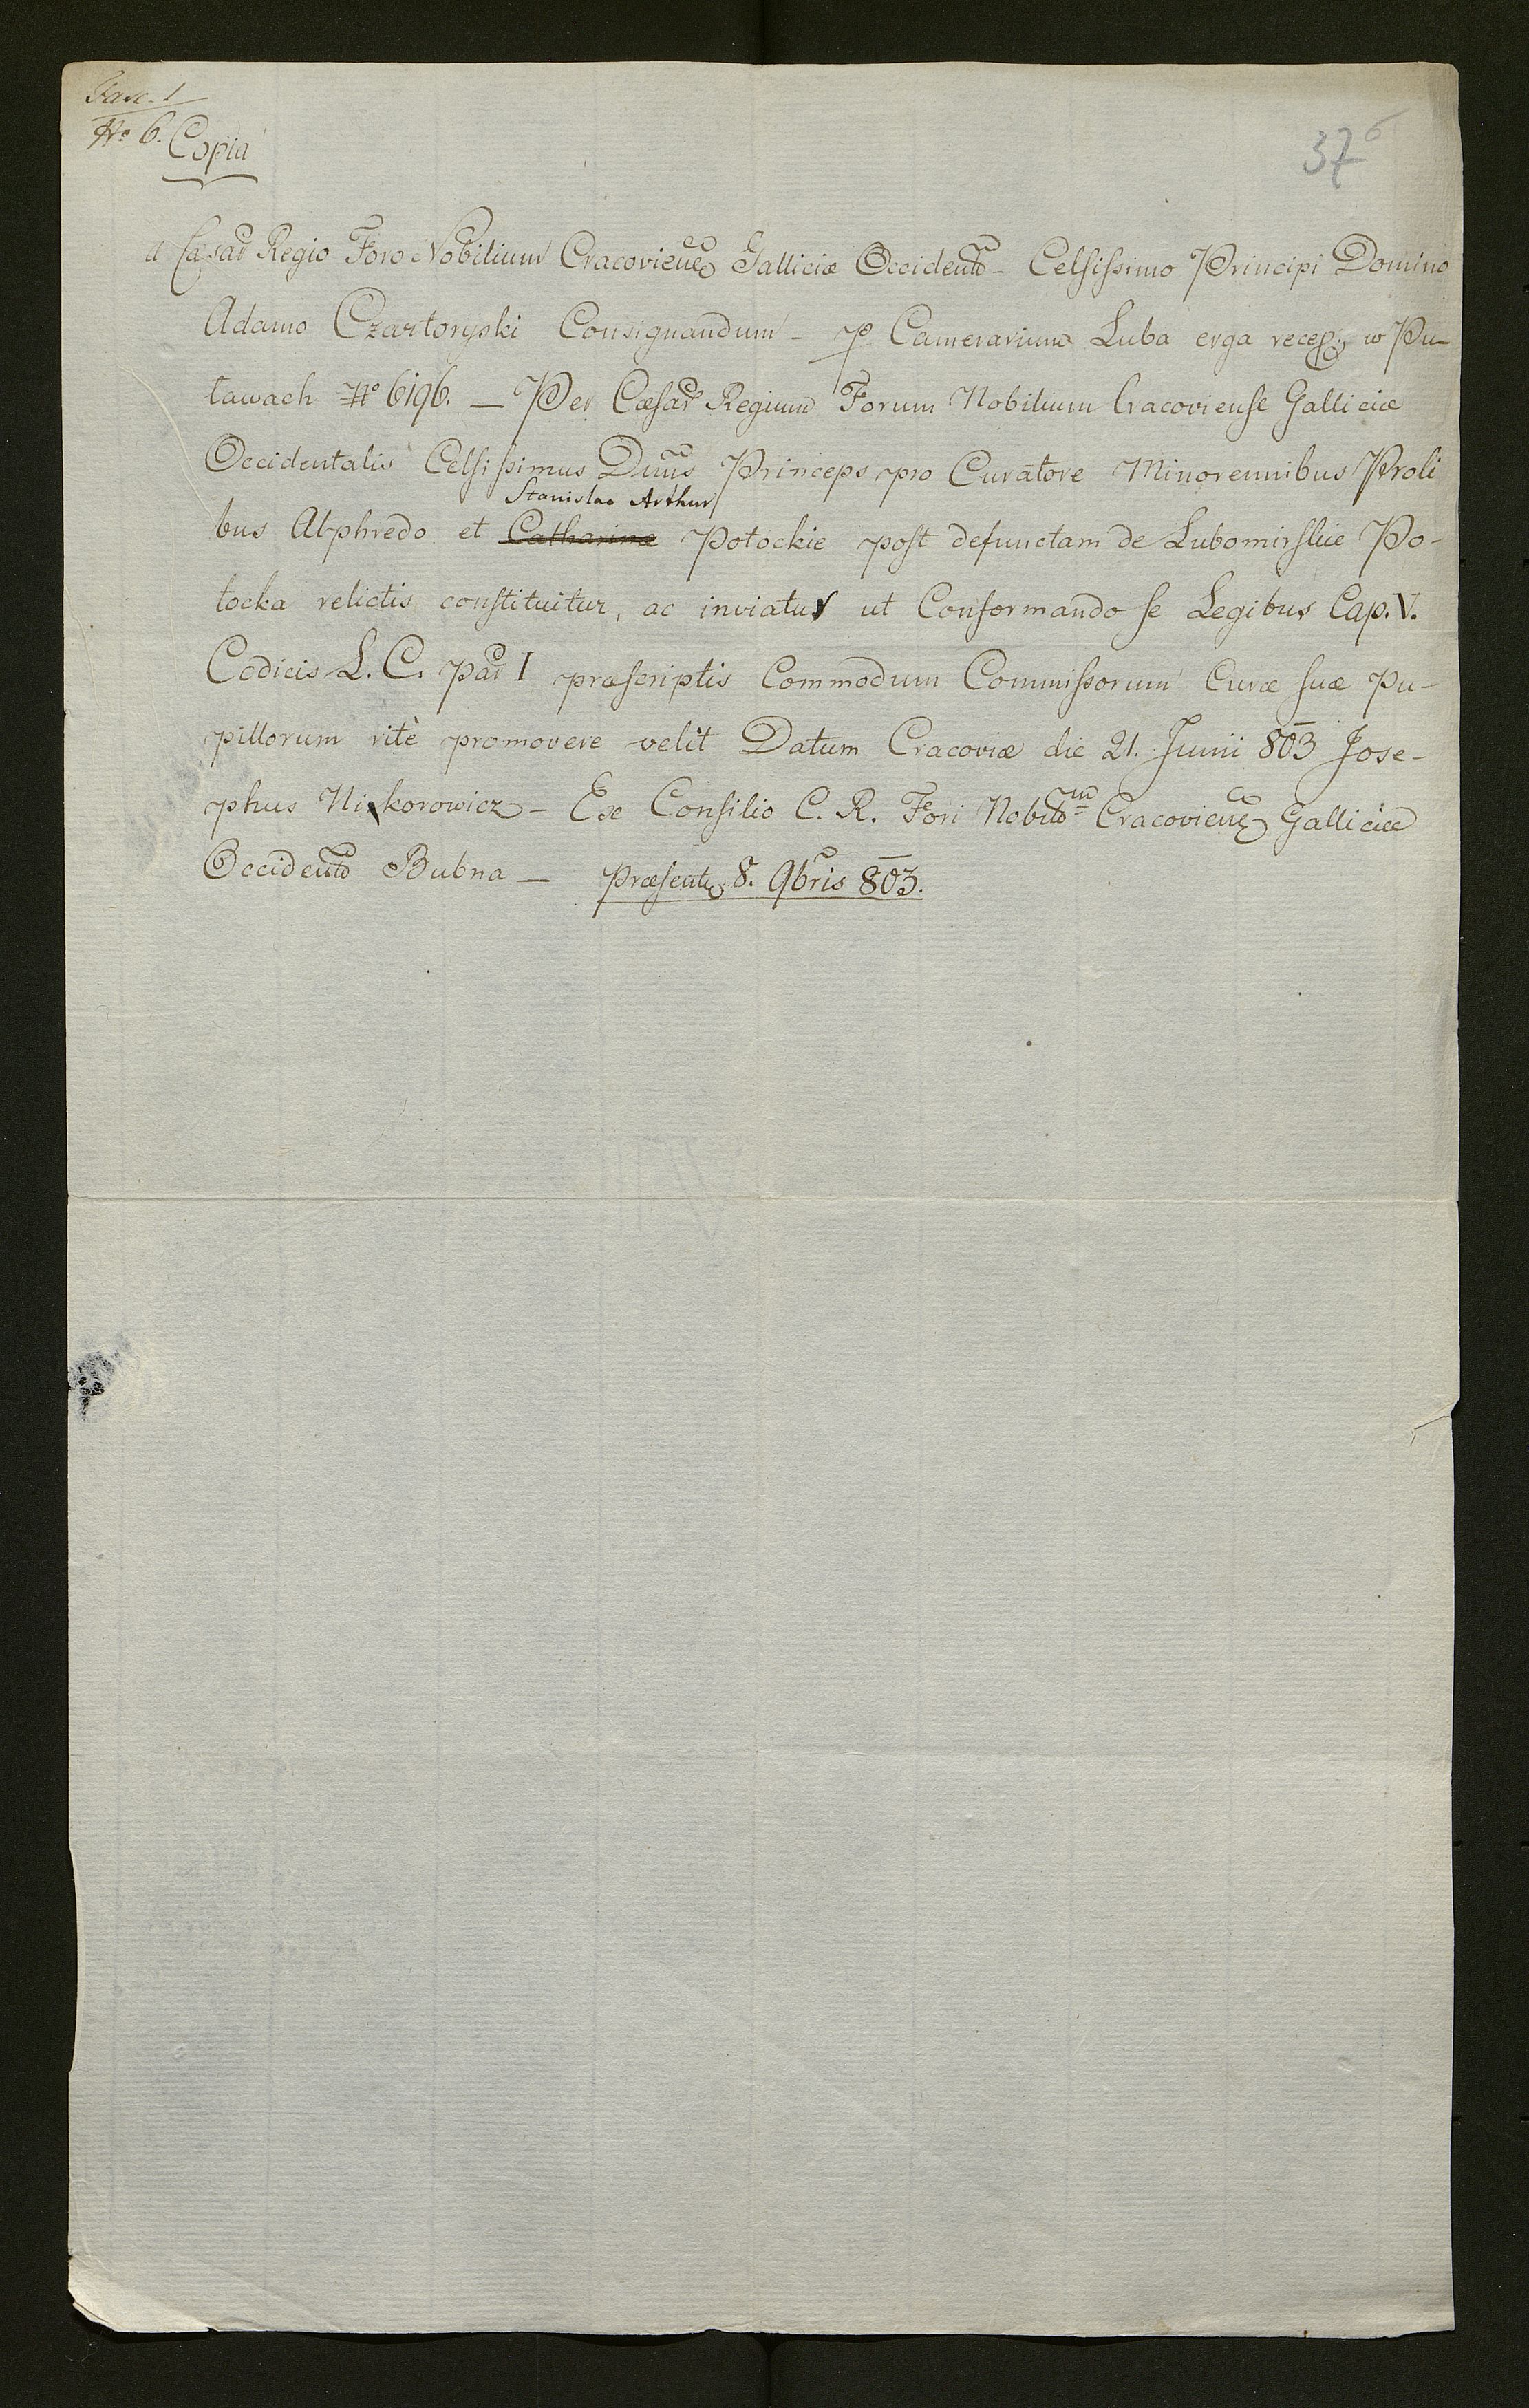 Fasc. 1
No 6.
Copia
37 6
a Cæsar Regio Foro Nobilium Cracoviens Galliciæ Occident – Celsissimo Principi Domino
Adamo Czartoryski Consignandum – p Camerarium Luba erga recep: w Pu-
ławach No 6196. – Per Cæsar Regium Forum Nobilium Cracoviense Galliciæ
Occidentalis Celsissimus Dnus Princeps pro Curatore Minorennibus Proli
Stanislao Arthur
bus Alphredo et Catharinæ Potockie post defunctam de Lubomirskie Po-
tocka relictis constituitur, ac inviatur ut Conformando se Legibus Cap. V.
Codicis L. C. par I præscriptis Commodum Commissorum Curæ suæ Pu-
pillorum ritè promovere velit Datum Cracoviæ die 21. Junii 803 Jose-
phus Nikorowicz – Ex Consilio C. R. Fori Nobilium Cracoviens Galliciæ
Occident Bubna – Præsent 8. 9bris 803.